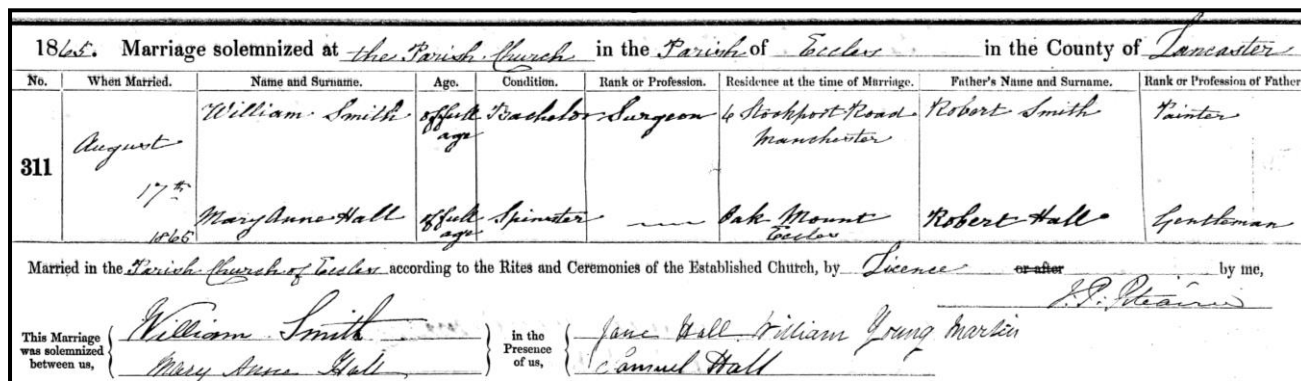 1865. Marriage solemnized at the Parish Church in the Parish of Eccles in the County of Lancaster
No. When Married. Name and Surname. Age. Condition. Rank or Profession. Residence at the time of Marriage. Father's Name and Surname. Rank or Profession of Father
311 August 17th 1865
William Smith of full age Bachelor Surgeon 6 Stockport Road Manchester Robert Smith Painter
Mary Anne Hall of full age Spinster Oak Mount Eccles Robert Hall Gentleman
Married in the Parish Church of Eccles according to the Rites and Ceremonies of the Established Church, by Licence or after by me,
J. P.
This Marriage was solemnized between us, William Smith in the Presence of us, Jane Hall William Young Martin
Mary Anne Hall Samuel Hall